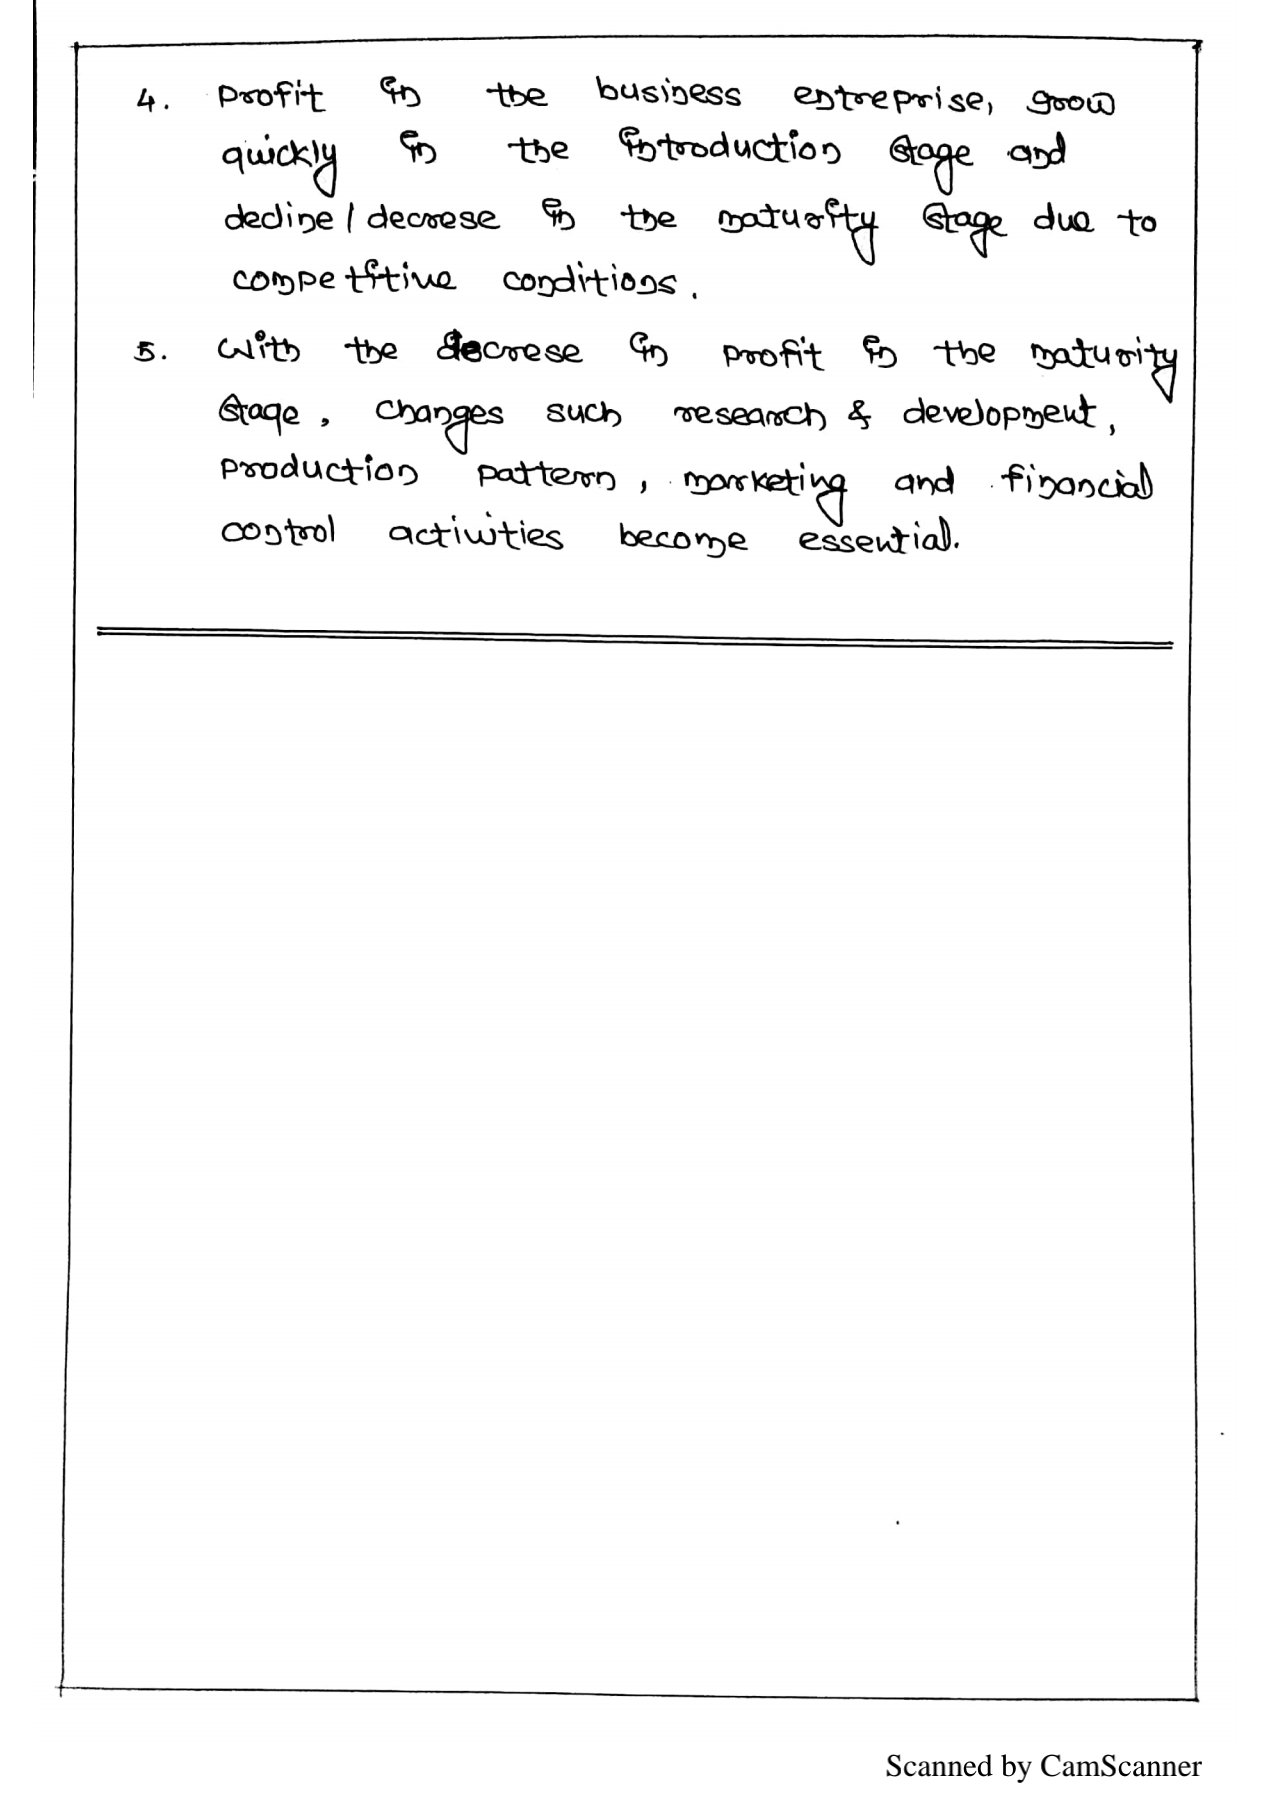 4. Profit in the business entreprise, grow
quickly in the introduction stage and
decline / decrese in the maturity stage due to
competitive conditions.
5. With the decrese in profit in the maturity
stage, changes such research & development,
production pattern, marketing and financial
control activities become essential.
Scanned by CamScanner